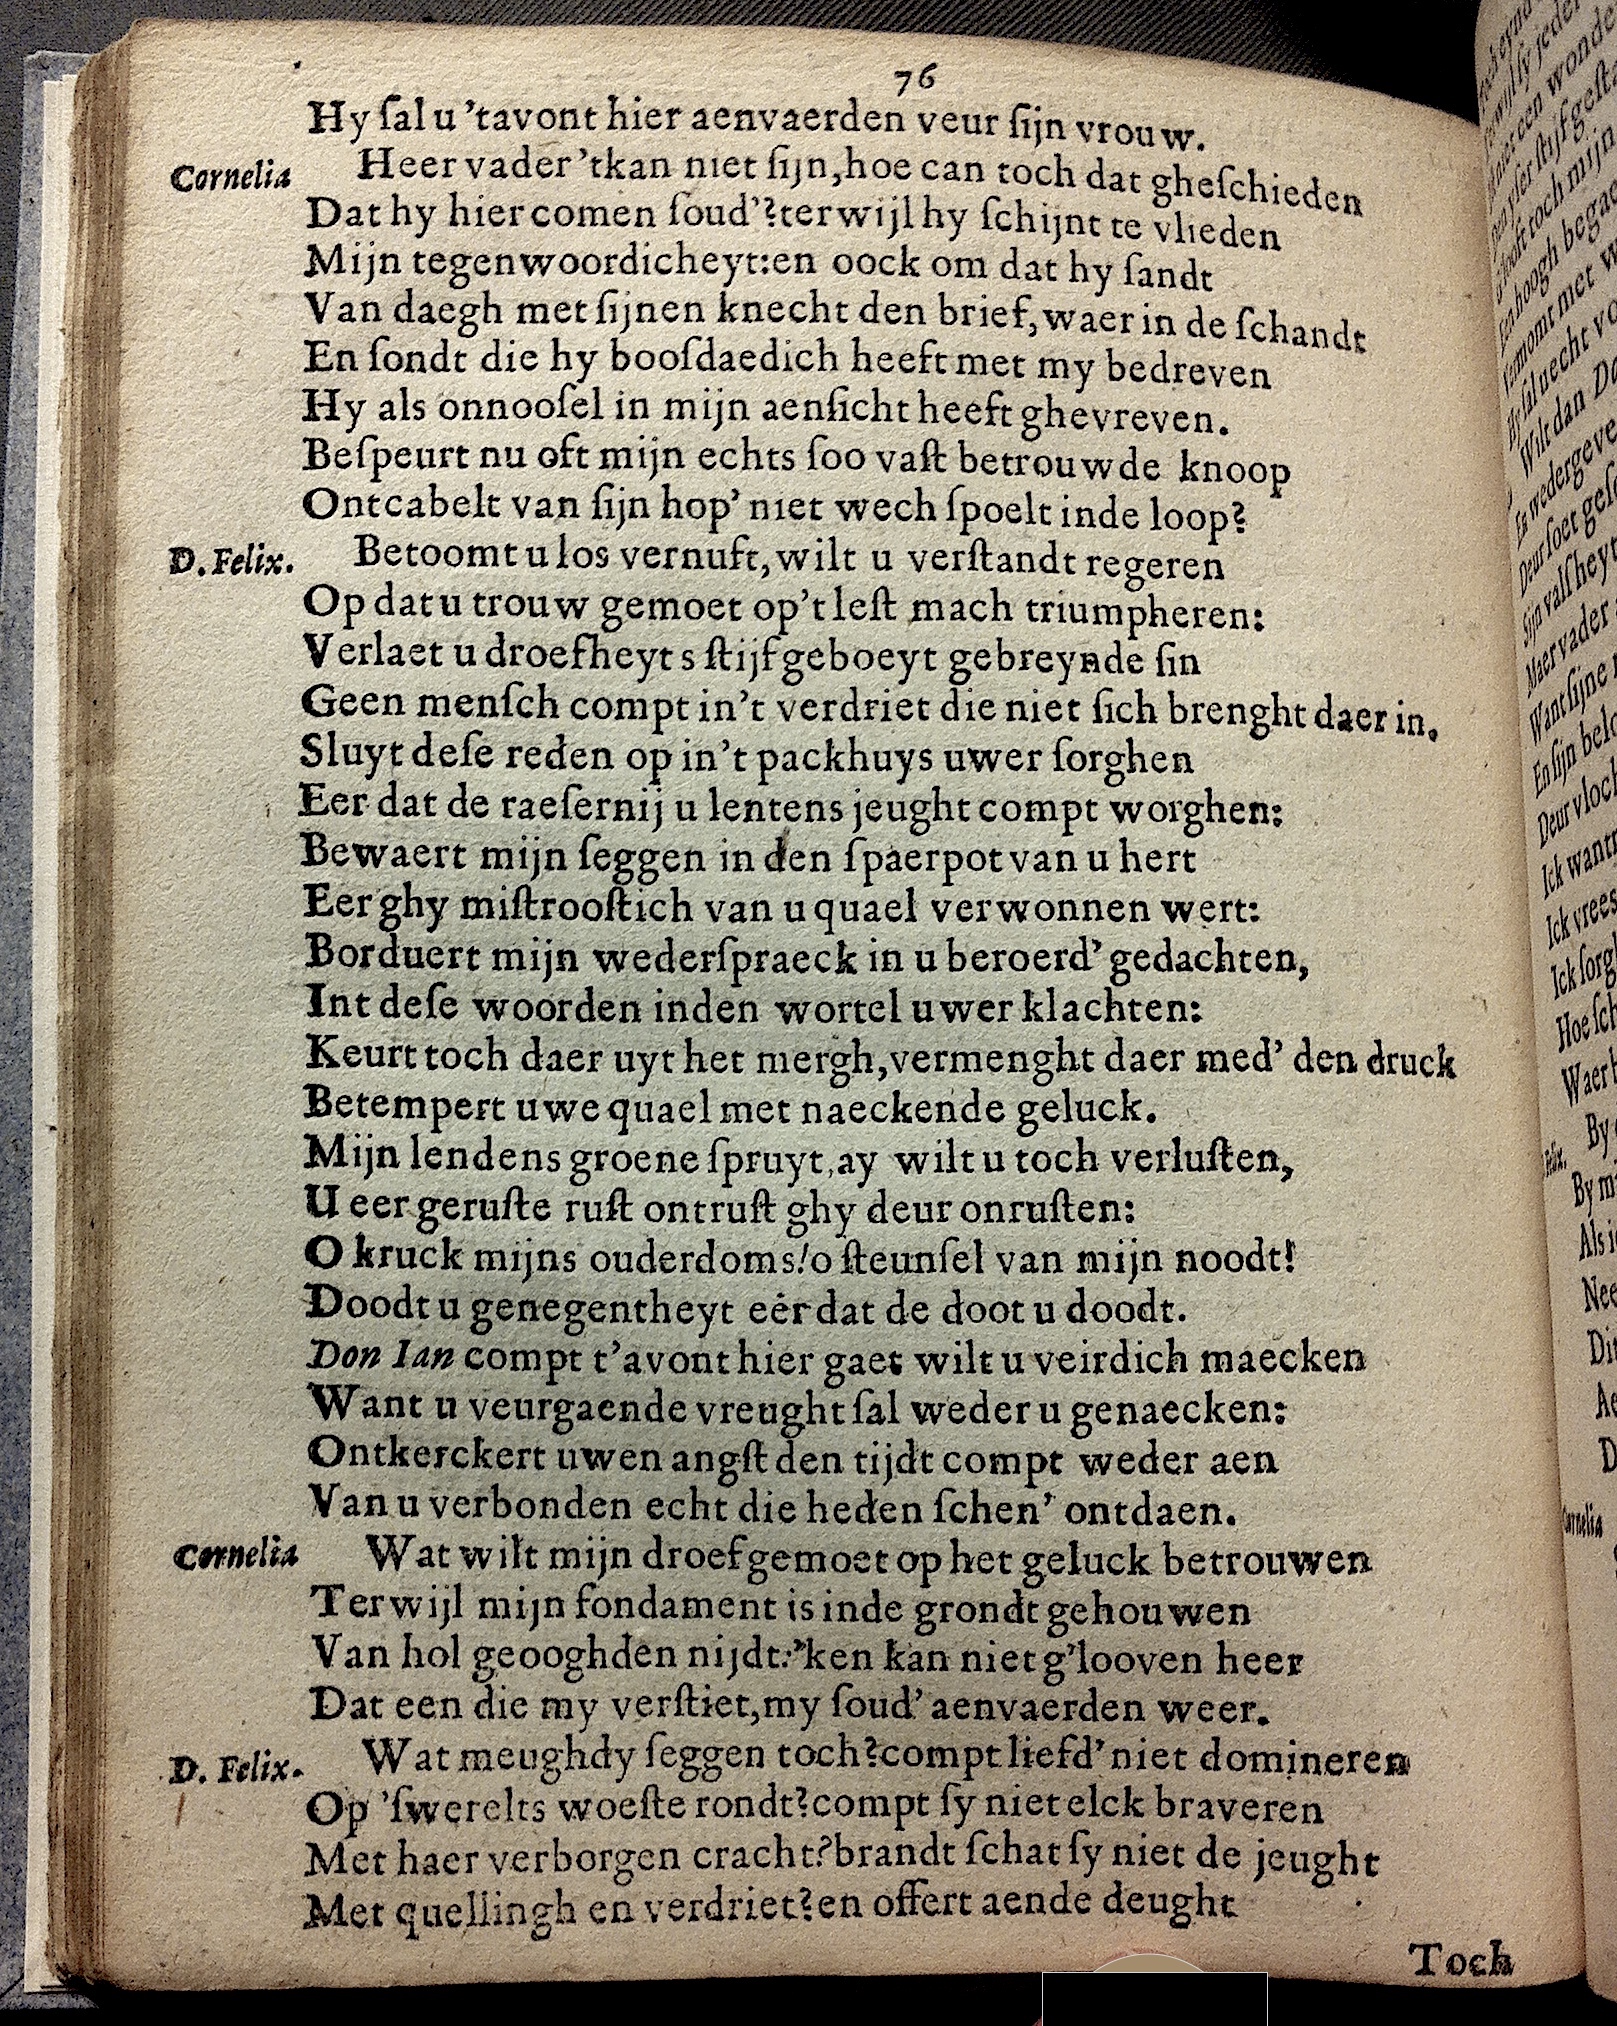 76
Hy ſal u 'tavont hier aenvaerden veur ſijn vrouw.
Cornelia Heer vader 'tkan niet ſijn, hoe can toch dat gheſchieden
Dat hy hier comen ſoud'? terwijl hy ſchijnt te vlieden
Mijn tegenwoordicheyt: en oock om dat hy ſandt
Van daegh met ſijnen knecht den brief, waer in de ſchandt
En ſondt die hy booſdaedich heeft met my bedreven
Hy als onnooſel in mijn aenſicht heeft ghevreven.
Beſpeurt nu oft mijn echts ſoo vaſt betrouwde knoop
Ontcabelt van ſijn hop' niet wech ſpoelt inde loop?
D. Felix. Betoomt u los vernuft, wilt u verſtandt regeren
Op dat u trouw gemoet op't leſt mach triumpheren:
Verlaet u droefheyts ſtijf geboeyt gebreynde ſin
Geen menſch compt in't verdriet die niet ſich brenght daer in.
Sluyt deſe reden op in't packhuys uwer ſorghen
Eer dat de raeſernij u lentens jeught compt worghen:
Bewaert mijn ſeggen in den ſpaerpot van u hert
Eer ghy miſtrooſtich van u quael verwonnen wert:
Borduert mijn wederſpraeck in u beroerd' gedachten,
Int deſe woorden inden wortel uwer klachten:
Keurt toch daer uyt het mergh, vermenght daer med' den druck
Betempert uwe quael met naeckende geluck.
Mijn lendens groene ſpruyt, ay wilt u toch verluſten,
U eer geruſte ruſt ontruſt ghy deur onruſten:
O kruck mijns ouderdoms! o ſteunſel van mijn noodt!
Doodt u genegentheyt eer dat de doot u doodt.
Don Ian compt t'avont hier gaet wilt u veirdich maecken
Want u veurgaende vreught ſal weder u genaecken:
Ontkerckert uwen angſt den tijdt compt weder aen
Van u verbonden echt die heden ſchen' ontdaen.
Cornelia Wat wilt mijn droef gemoet op het geluck betrouwen
Terwijl mijn fondament is inde grondt gehouwen
Van hol geooghden nijdt: 'ken kan niet g'looven heer
Dat een die my verſtiet, my ſoud' aenvaerden weer.
D. Felix. Wat meughdy ſeggen toch? compt liefd' niet domineren
Op 'ſwerelts woeſte rondt? compt ſy niet elck braveren
Met haer verborgen cracht? brandt ſchat ſy niet de jeught
Met quellingh en verdriet? en offert aende deught
Toch